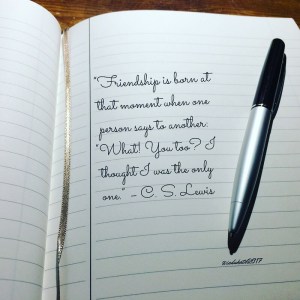 "Friendship is born at
that moment when one
person says to another:
"What! You too? I
thought I was the only
one." – C. S. Lewis